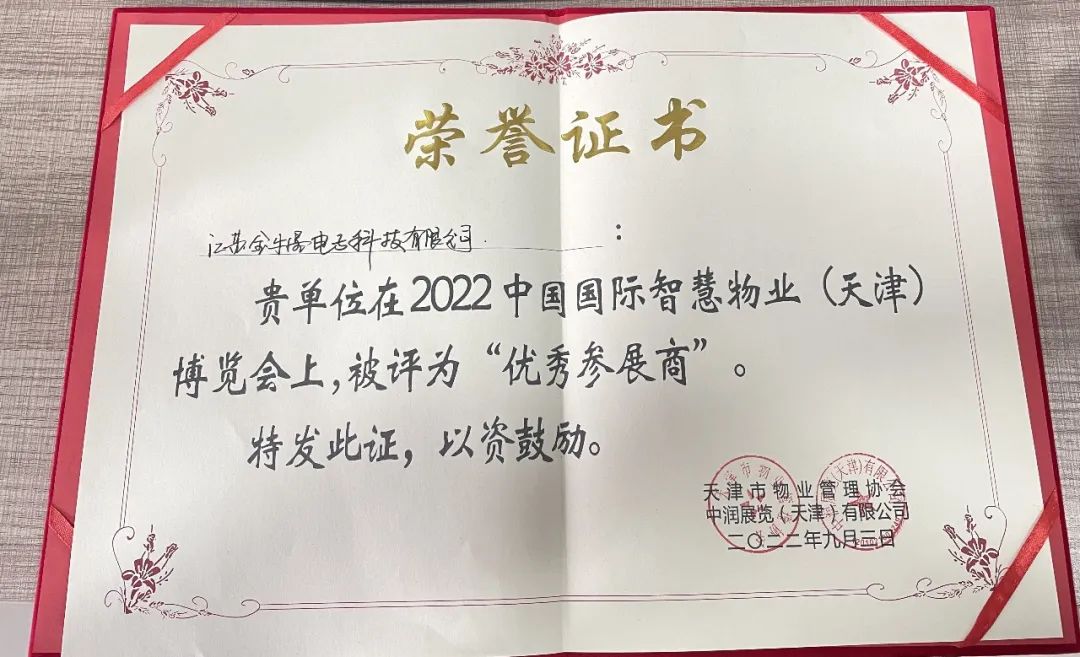 荣誉证书
江苏金牛星电子科技有限公司:
贵单位在2022中国国际智慧物业（天津）
博览会上,被评为“优秀参展商”。
特发此证，以资鼓励。
天津市物业管理协会
中润展览（天津）有限公司
二〇二二年九月三日